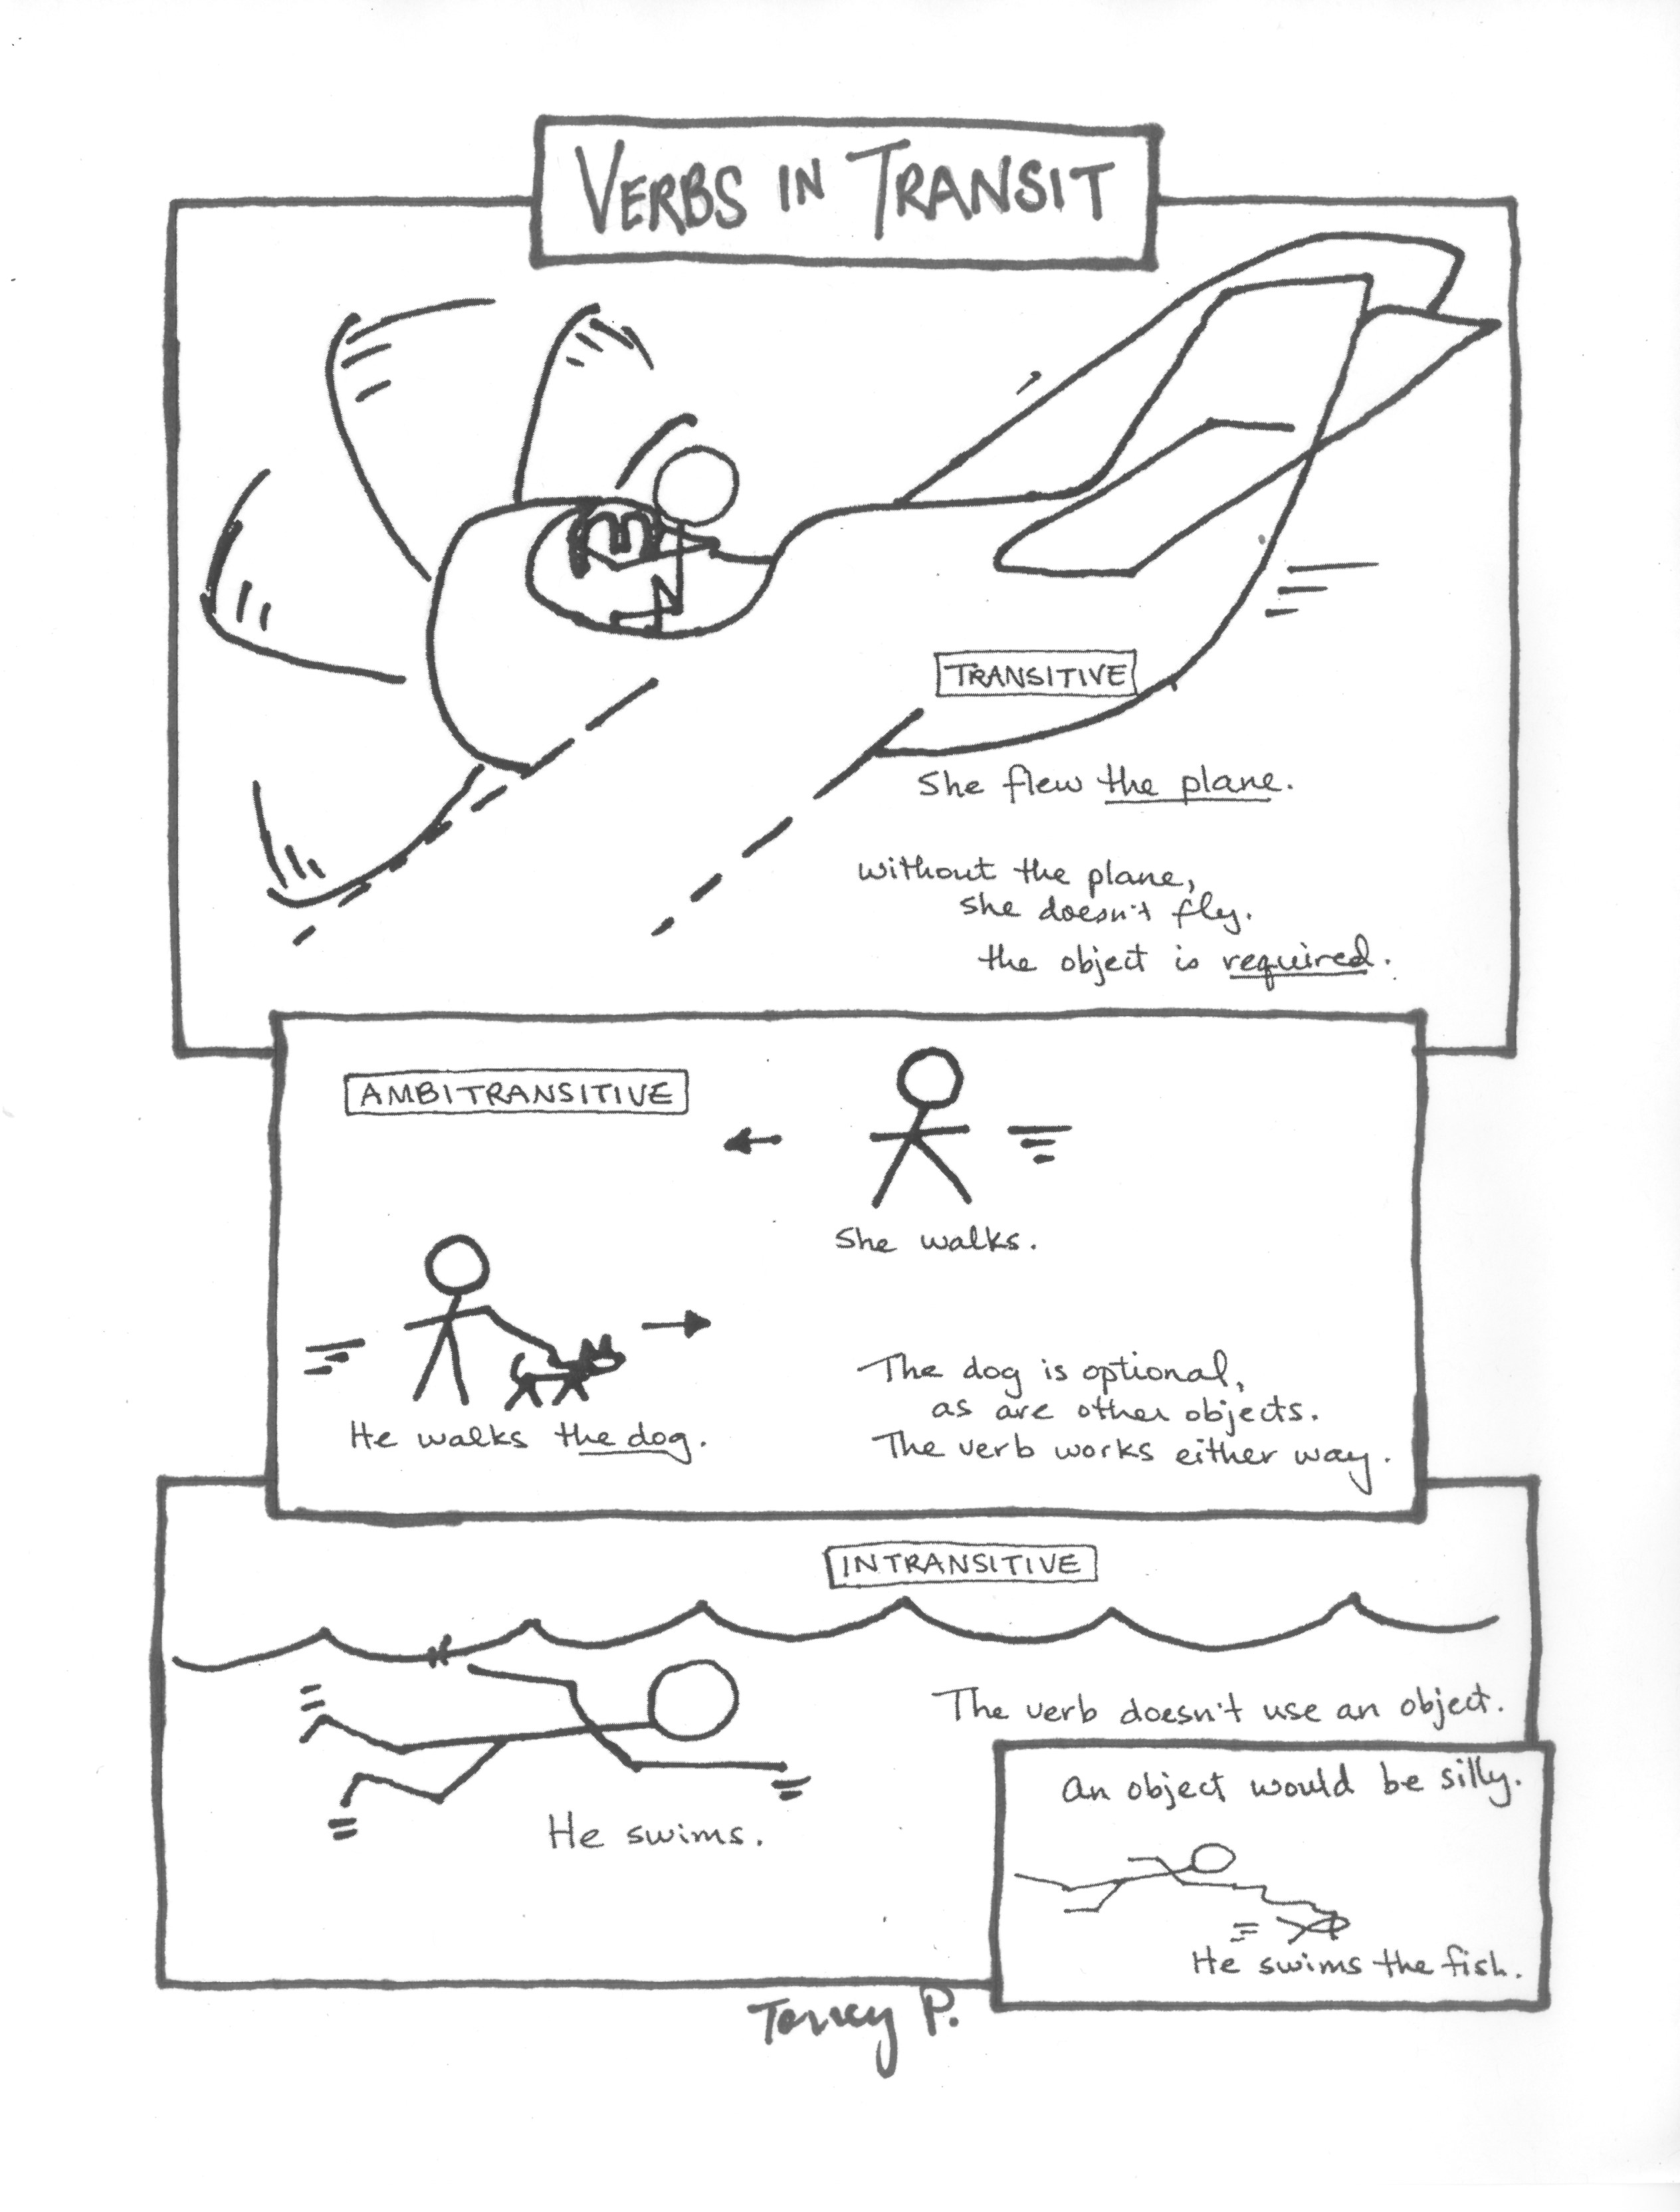 VERBS IN TRANSIT
TRANSITIVE
She flew the plane.
without the plane,
she doesn't fly.
the object is required.
AMBITRANSITIVE
She walks.
He walks the dog.
The dog is optional,
as are other objects.
The verb works either way.
INTRANSITIVE
The verb doesn't use an object.
He swims.
An object would be silly.
He swims the fish.
Torrey P.